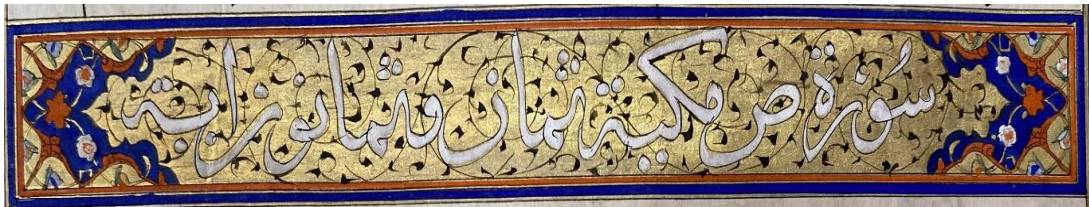 سورة ص مكية ثمان وثمانون اية